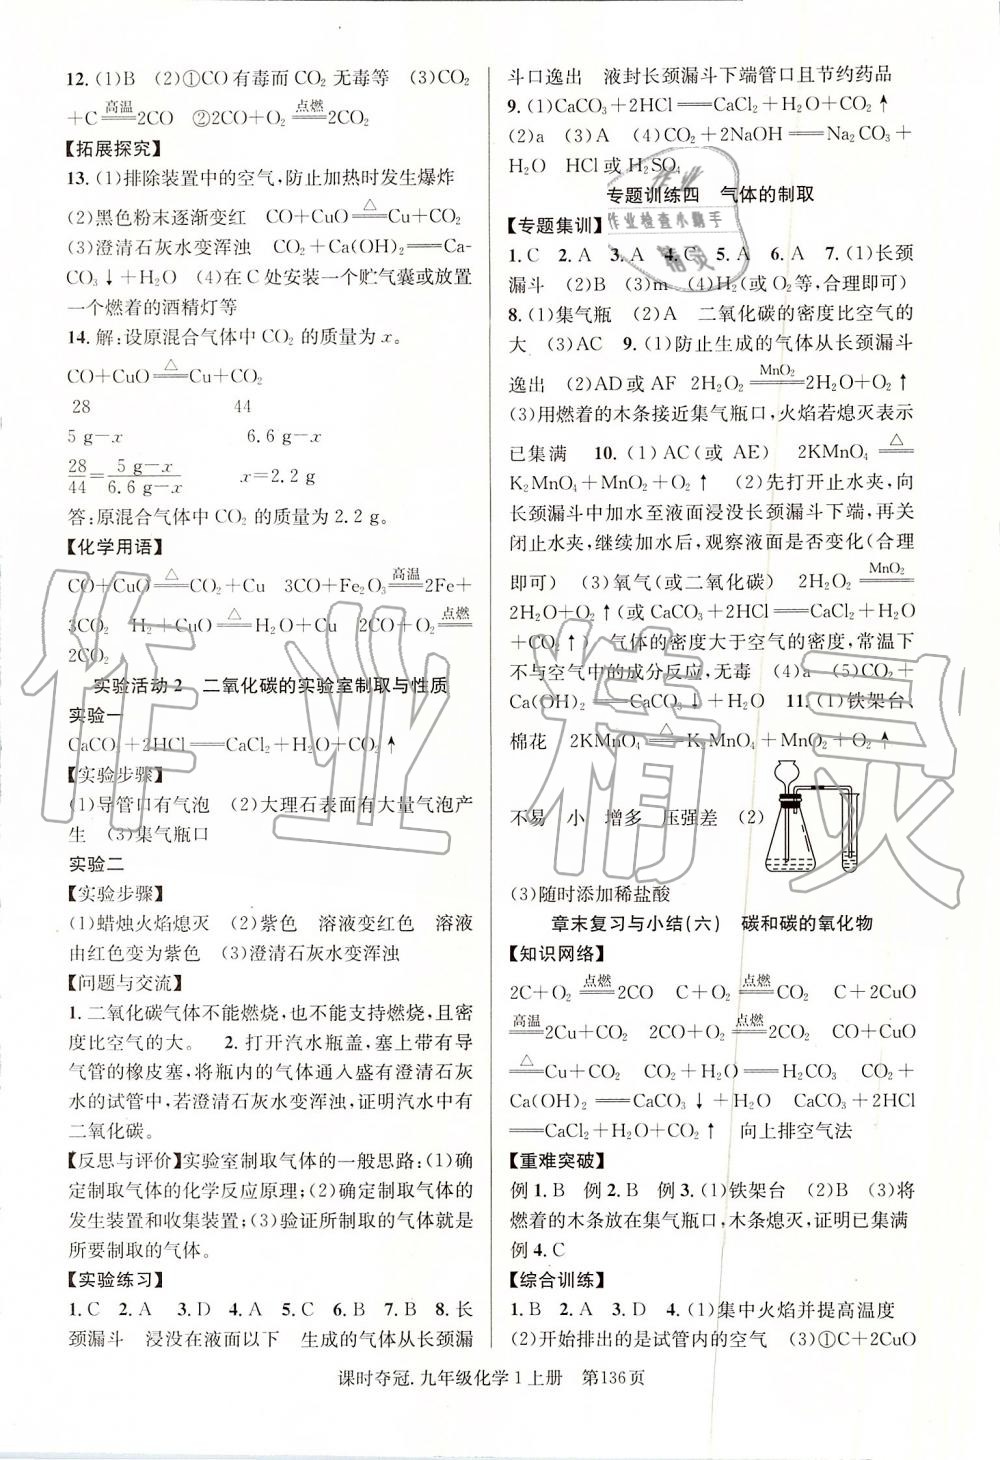 12. (1)B (2)①CO有毒而CO₂无毒等 (3)CO₂
+C══高温══2CO ②2CO+O₂══点燃══2CO₂
【拓展探究】
13. (1)排除装置中的空气,防止加热时发生爆炸
(2)黑色粉末逐渐变红 CO+CuO══△══Cu+CO₂
(3)澄清石灰水变浑浊 CO₂+Ca(OH)₂══Ca-
CO₃↓+H₂O (4)在C处安装一个贮气囊或放置
一个燃着的酒精灯等
14. 解:设原混合气体中CO₂的质量为x。
CO+CuO══△══Cu+CO₂
28 44
5 g-x 6.6 g-x
28/44=(5 g-x)/(6.6 g-x) x=2.2 g
答:原混合气体中CO₂的质量为2.2 g。
【化学用语】
CO+CuO══△══CO₂+Cu 3CO+Fe₂O₃══高温══2Fe+
3CO₂ H₂+CuO══△══H₂O+Cu 2CO+O₂══点燃══
2CO₂
实验活动2 二氧化碳的实验室制取与性质
实验一
CaCO₃+2HCl══CaCl₂+H₂O+CO₂↑
【实验步骤】
(1)导管口有气泡 (2)大理石表面有大量气泡产
生 (3)集气瓶口
实验二
【实验步骤】
(1)蜡烛火焰熄灭 (2)紫色 溶液变红色 溶液
由红色变为紫色 (3)澄清石灰水变浑浊
【问题与交流】
1. 二氧化碳气体不能燃烧,也不能支持燃烧,且密
度比空气的大。 2. 打开汽水瓶盖,塞上带有导
气管的橡皮塞,将瓶内的气体通入盛有澄清石灰
水的试管中,若澄清石灰水变浑浊,证明汽水中有
二氧化碳。
【反思与评价】实验室制取气体的一般思路:(1)确
定制取气体的化学反应原理;(2)确定制取气体的
发生装置和收集装置;(3)验证所制取的气体就是
所要制取的气体。
【实验练习】
1. C 2. A 3. D 4. A 5. C 6. B 7. B 8. 长
颈漏斗 浸没在液面以下 生成的气体从长颈漏
斗口逸出 液封长颈漏斗下端管口且节约药品
9. (1)CaCO₃+2HCl══CaCl₂+H₂O+CO₂↑
(2)a (3)A (4)CO₂+2NaOH══Na₂CO₃+
H₂O HCl或H₂SO₄
专题训练四 气体的制取
【专题集训】
1. C 2. A 3. A 4. C 5. A 6. A 7. (1)长颈
漏斗 (2)B (3)m (4)H₂(或O₂等,合理即可)
8. (1)集气瓶 (2)A 二氧化碳的密度比空气的
大 (3)AC 9. (1)防止生成的气体从长颈漏斗
逸出 (2)AD或AF 2H₂O₂══MnO₂══2H₂O+O₂↑
(3)用燃着的木条接近集气瓶口,火焰若熄灭表示
已集满 10. (1)AC(或AE) 2KMnO₄══△══
K₂MnO₄+MnO₂+O₂↑ (2)先打开止水夹,向
长颈漏斗中加水至液面浸没长颈漏斗下端,再关
闭止水夹,继续加水后,观察液面是否变化(合理
即可) (3)氧气(或二氧化碳) 2H₂O₂══MnO₂══
2H₂O+O₂↑(或CaCO₃+2HCl══CaCl₂+H₂O
+CO₂↑) 气体的密度大于空气的密度,常温下
不与空气中的成分反应,无毒 (4)a (5)CO₂+
Ca(OH)₂══CaCO₃↓+H₂O 11. (1)铁架台、
棉花 2KMnO₄══△══K₂MnO₄+MnO₂+O₂↑
不易 小 增多 压强差 (2)
(3)随时添加稀盐酸
章末复习与小结(六) 碳和碳的氧化物
【知识网络】
2C+O₂══点燃══2CO C+O₂══点燃══CO₂ C+2CuO
══高温══2Cu+CO₂ 2CO+O₂══点燃══2CO₂ CO+CuO
══△══Cu+CO₂ CO₂+H₂O══H₂CO₃ CO₂+
Ca(OH)₂══CaCO₃↓+H₂O CaCO₃+2HCl
══CaCl₂+H₂O+CO₂↑ 向上排空气法
【重难突破】
例1. B 例2. B 例3. (1)铁架台 (2)B (3)将
燃着的木条放在集气瓶口,木条熄灭,证明已集满
例4. C
【综合训练】
1. B 2. A 3. A 4. (1)集中火焰并提高温度
(2)开始排出的是试管内的空气 (3)①C+2CuO
课时夺冠.九年级化学1上册 第136页
作业精灵
作业
作业检查小助手
精灵